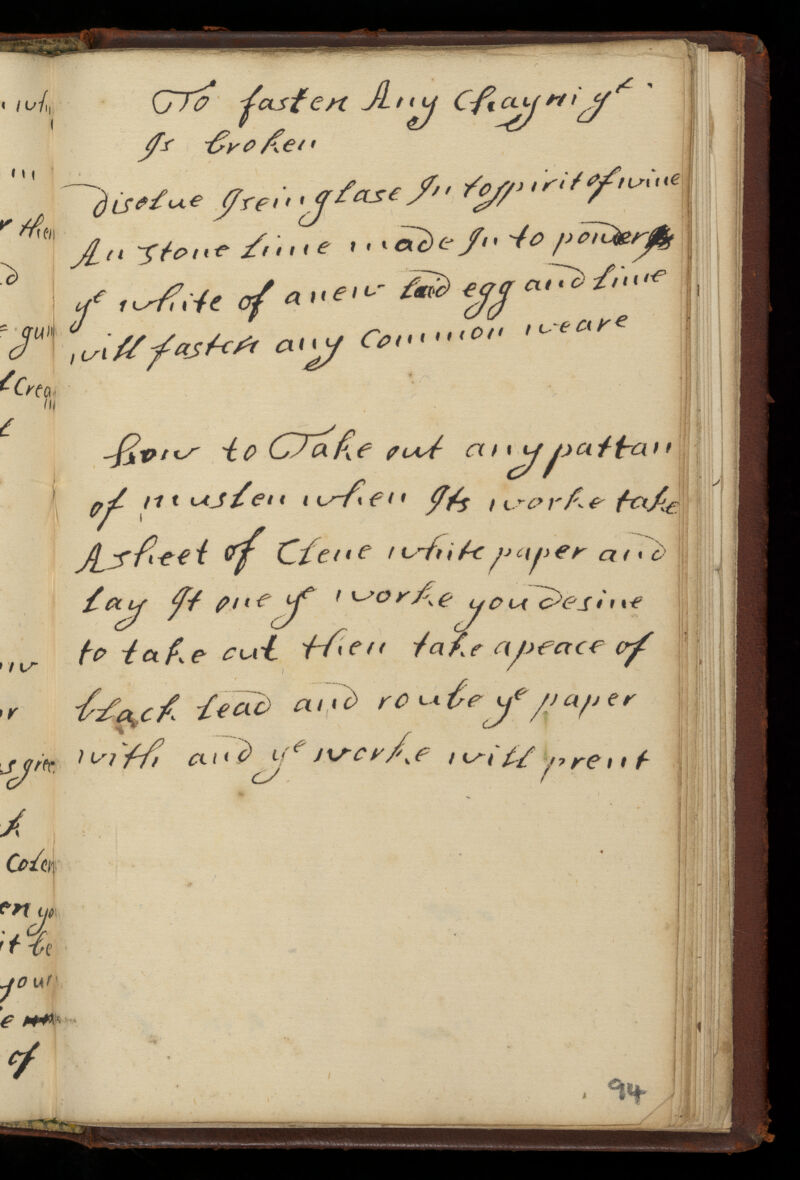 To fasten Any Chayni yt
Is broken
disolue Iseinglase In to spirit of wine
An stone lime made In to ponder
ye white of a new laid egg and lime
will fasten any Common weare
how to Take out any pattan
of muslen when Its worke take
A sheet of Clene white paper and
lay It one ye worke you desine
to take out then take a peace of
black lead and roube ye paper
with and ye worke will prent
94